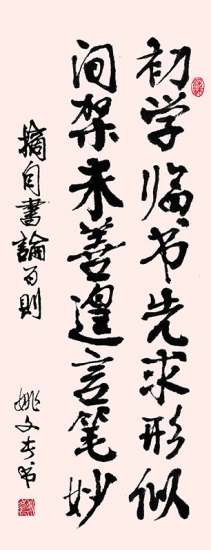 初学临书先求形似
间架未善遑言笔妙
摘自书論百則
姚文奎书